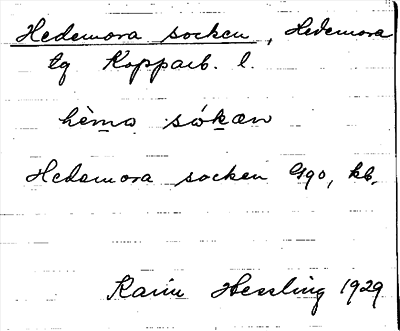 Hedemora socken, Hedemora
tg Kopparb. l.
hèma sókæn
Hedemora socken Gqo, kb.
Karin Hessling 1929